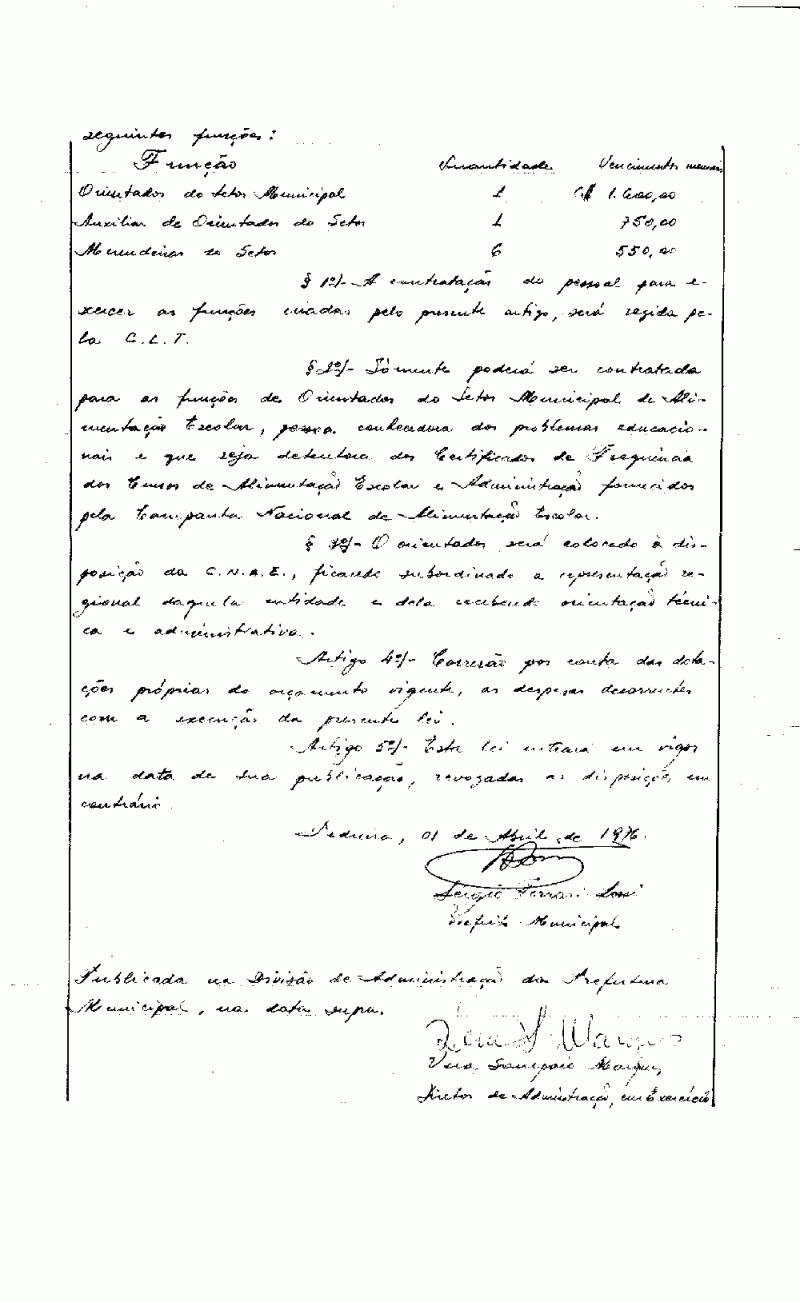 seguintes funções:
Função Quantidade Vencimentos mensais
Orientador do Setor Municipal 1 Cr$ 1.600,00
Auxiliar de Orientador do Setor 1 750,00
Merendeiras do Setor 6 550,00
§ 1º/- A contratação do pessoal para e-
xercer as funções criadas pelo presente artigo, será regida pe-
la C.L.T.
§ 2º/- Sómente poderá ser contratada
para as funções de Orientador do Setor Municipal de Ali-
mentação Escolar, pessoa conhecedora dos problemas educacio-
nais e que seja detentora dos Certificados de Frequência
dos Cursos de Alimentação Escolar e Administração fornecidos
pela Campanha Nacional de Alimentação Escolar.
§ 3º/- O orientador será colocado à dis-
posição da C.N.A.E., ficando subordinado a representação re-
gional daquela entidade e dela recebendo orientação técni-
ca e administrativa.
Artigo 4º/- Correrão por conta das dota-
ções próprias do orçamento vigente, as despesas decorrentes
com a execução da presente lei.
Artigo 5º/- Esta lei entrará em vigor
na data de sua publicação, revogadas as disposições em
contrário.
Pedreira, 01 de Abril de 1976.
Sergio Ferrari
Prefeito Municipal
Publicada na Divisão de Administração da Prefeitura
Municipal, na data supra.
Vera S. Marques
Vera Sampaio Marques
Diretor de Administração, em Exercício